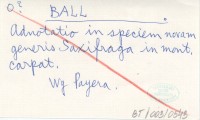 O?
BALL
Adnotatio in speciem novam
generis Saxifraga in mont.
carpat.
Wg Payera.
BT/003/0343